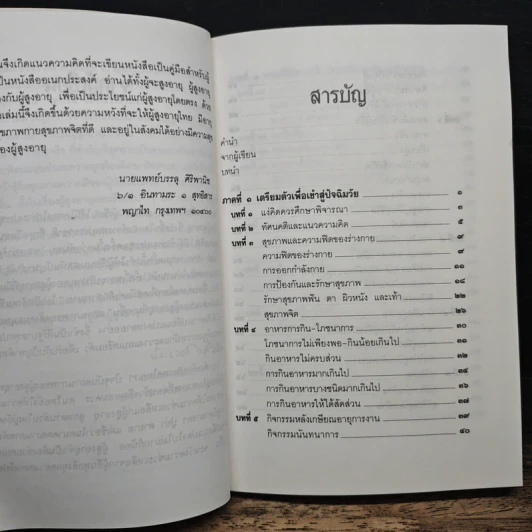 นจึงเกิดแนวความคิดที่จะเขียนหนังสือเป็นคู่มือสำหรับผู้
ป็นหนังสืออเนกประสงค์ อ่านได้ทั้งผู้จะสูงอายุ ผู้สูงอายุ
องกับผู้สูงอายุ เพื่อเป็นประโยชน์แก่ผู้สูงอายุโดยตรง ด้วย
อเล่มนี้จึงเกิดขึ้นด้วยความหวังที่จะให้ผู้สูงอายุไทย มีอายุ
ขภาพกายสุขภาพจิตที่ดี และอยู่ในสังคมได้อย่างมีความสุข
องผู้สูงอายุ
นายแพทย์บรรลุ ศิริพานิช
๖/๑ อินทามระ ๑ สุทธิสาร
พญาไท กรุงเทพฯ ๑๐๔๐๐
สารบัญ
คำนำ
จากผู้เขียน
บทนำ
ภาคที่ ๑ เตรียมตัวเพื่อเข้าสู่ปัจฉิมวัย ๑
บทที่ ๑ แง่คิดควรศึกษาพิจารณา ๓
บทที่ ๒ ทัศนคติและแนวความคิด ๕
บทที่ ๓ สุขภาพและความฟิตของร่างกาย ๙
ความฟิตของร่างกาย ๙
การออกกำลังกาย ๑๑
การป้องกันและรักษาสุขภาพ ๑๘
รักษาสุขภาพฟัน ตา ผิวหนัง และเท้า ๒๒
สุขภาพจิต ๒๖
บทที่ ๔ อาหารการกิน-โภชนาการ ๓๐
โภชนาการไม่เพียงพอ-กินน้อยเกินไป ๓๑
กินอาหารไม่ครบส่วน ๓๒
การกินอาหารมากเกินไป ๓๔
การกินอาหารบางชนิดมากเกินไป ๓๖
การกินอาหารให้ได้สัดส่วน ๓๗
บทที่ ๕ กิจกรรมหลังเกษียณอายุการงาน ๓๙
กิจกรรมนันทนาการ ๔๐